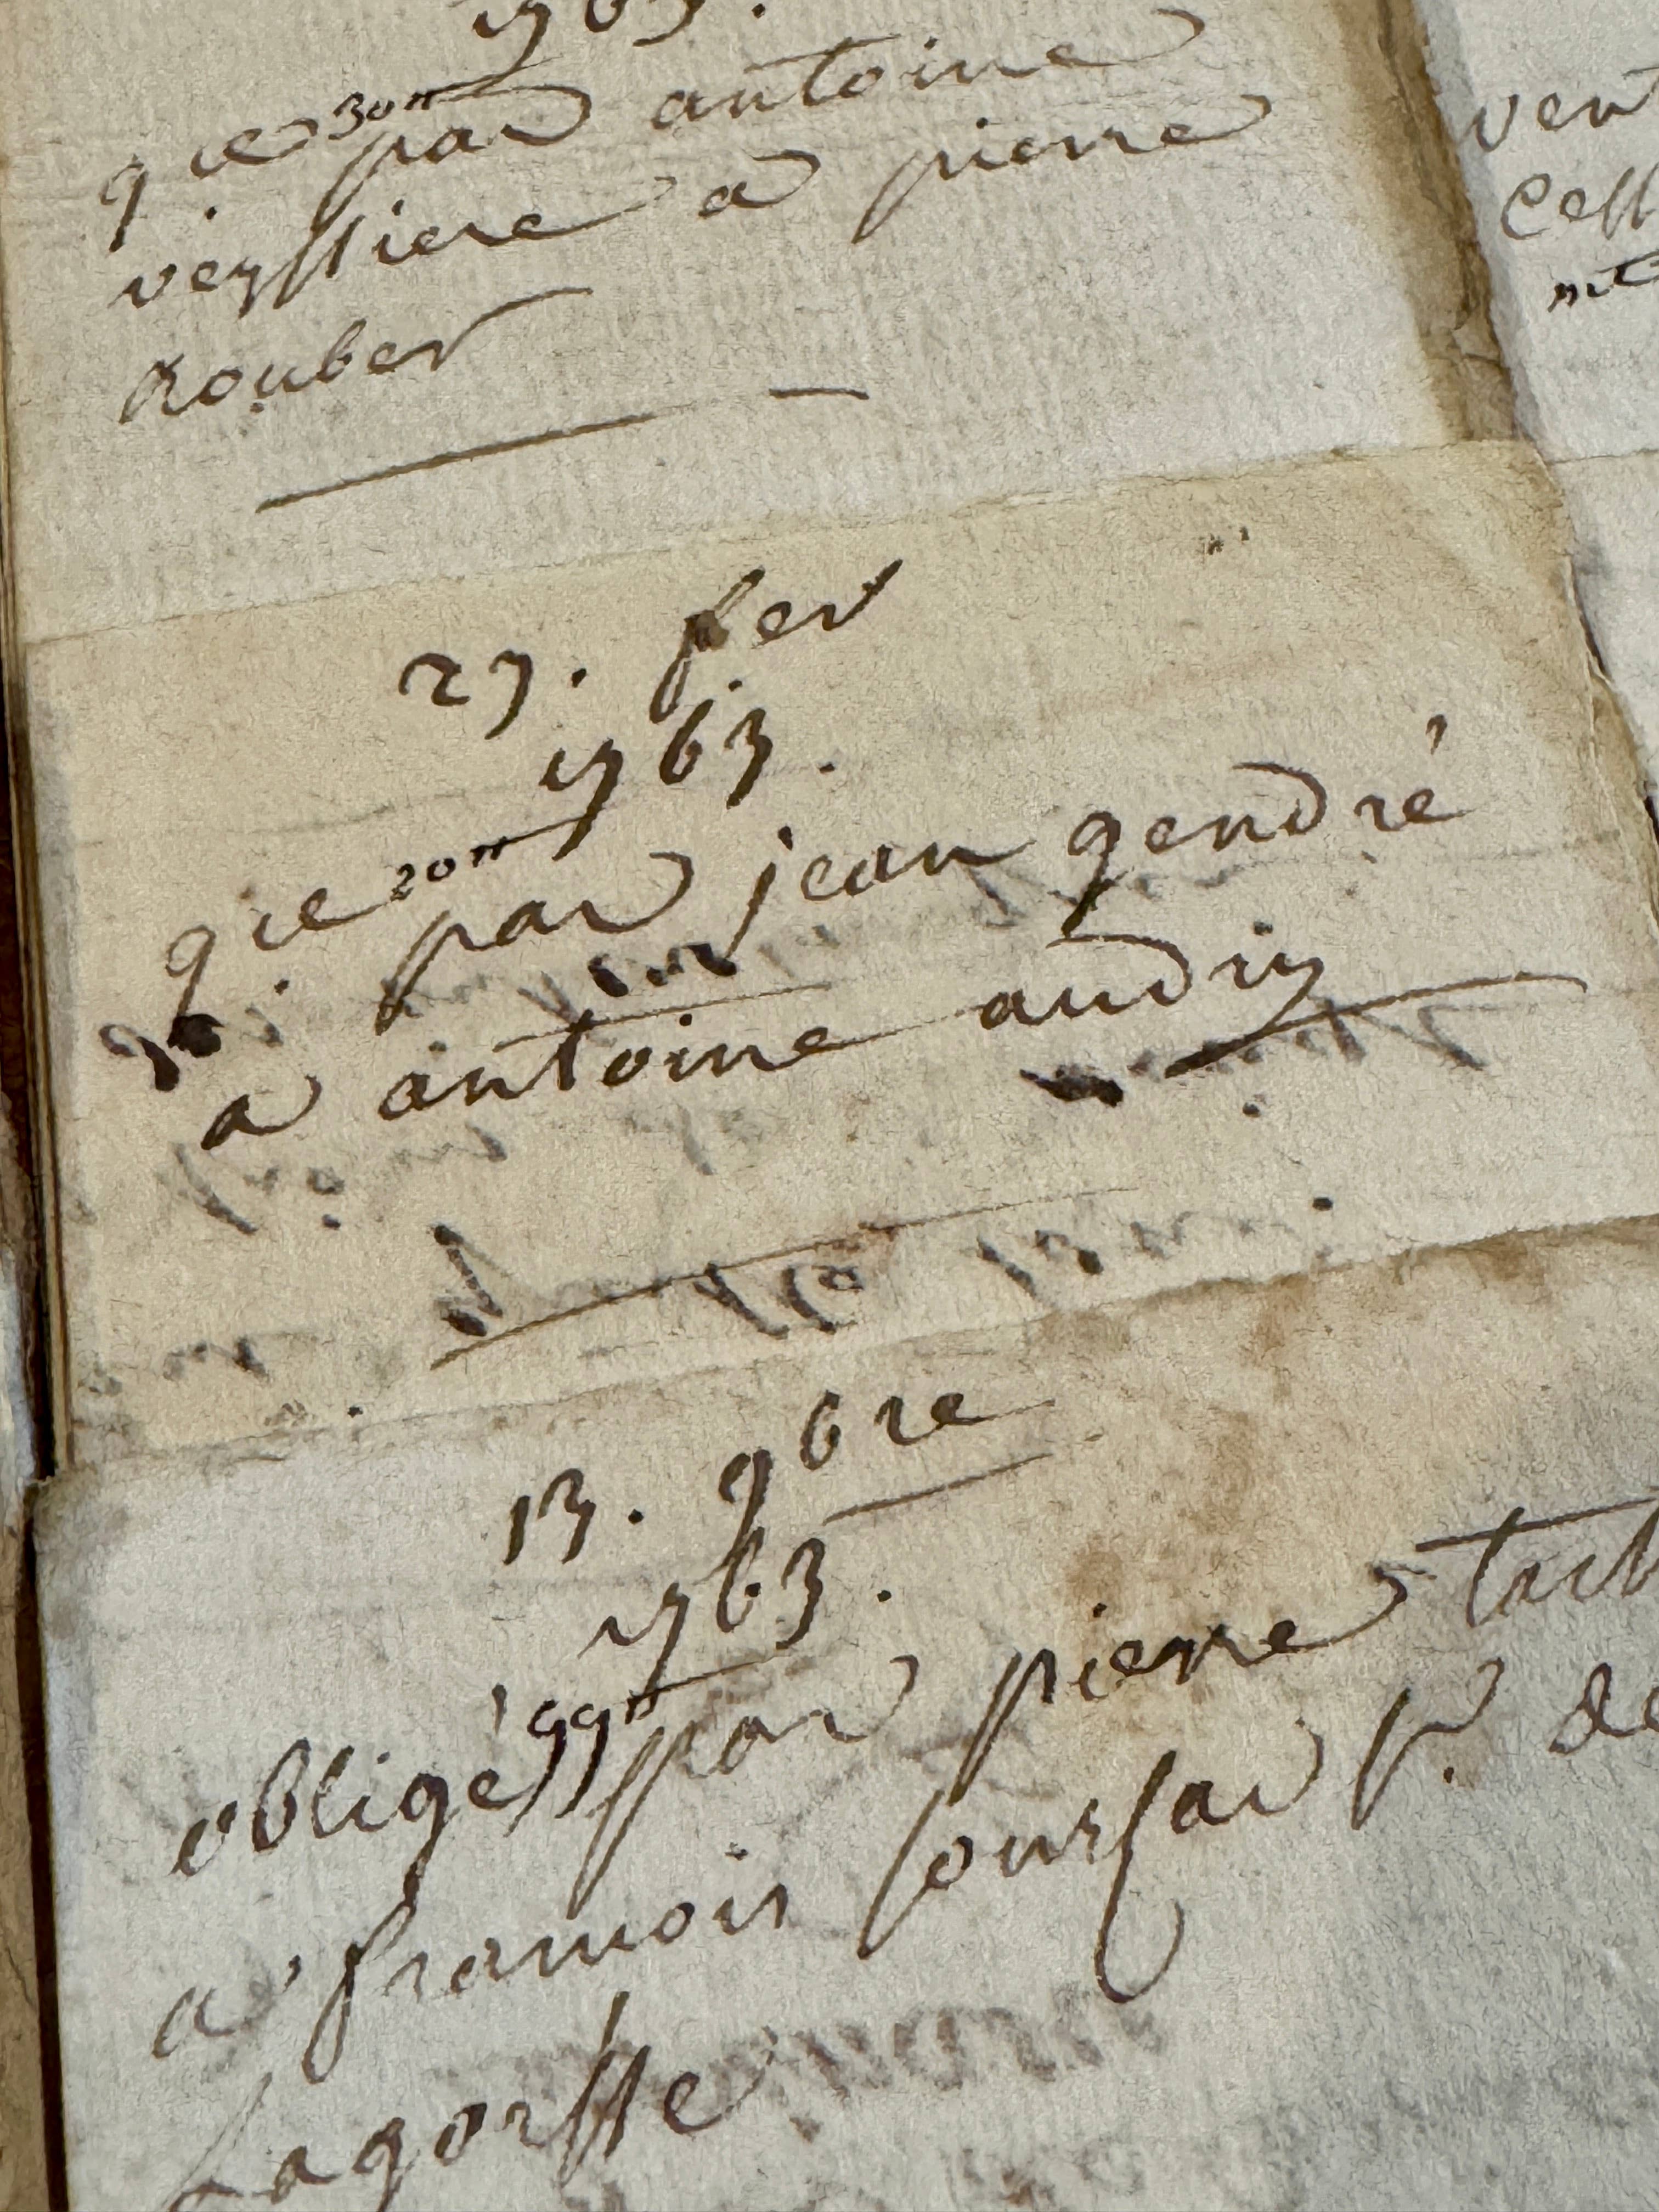 1763.
q.ce 30tt par antoine
veyssiere a pierre
Rouber
27. fev
1763.
q.ce 20tt par jean gendré
a antoine audiy
13. 9bre
1763.
obligé 99tt par pierre
a francois soursac p. de
Lagorsse
vent